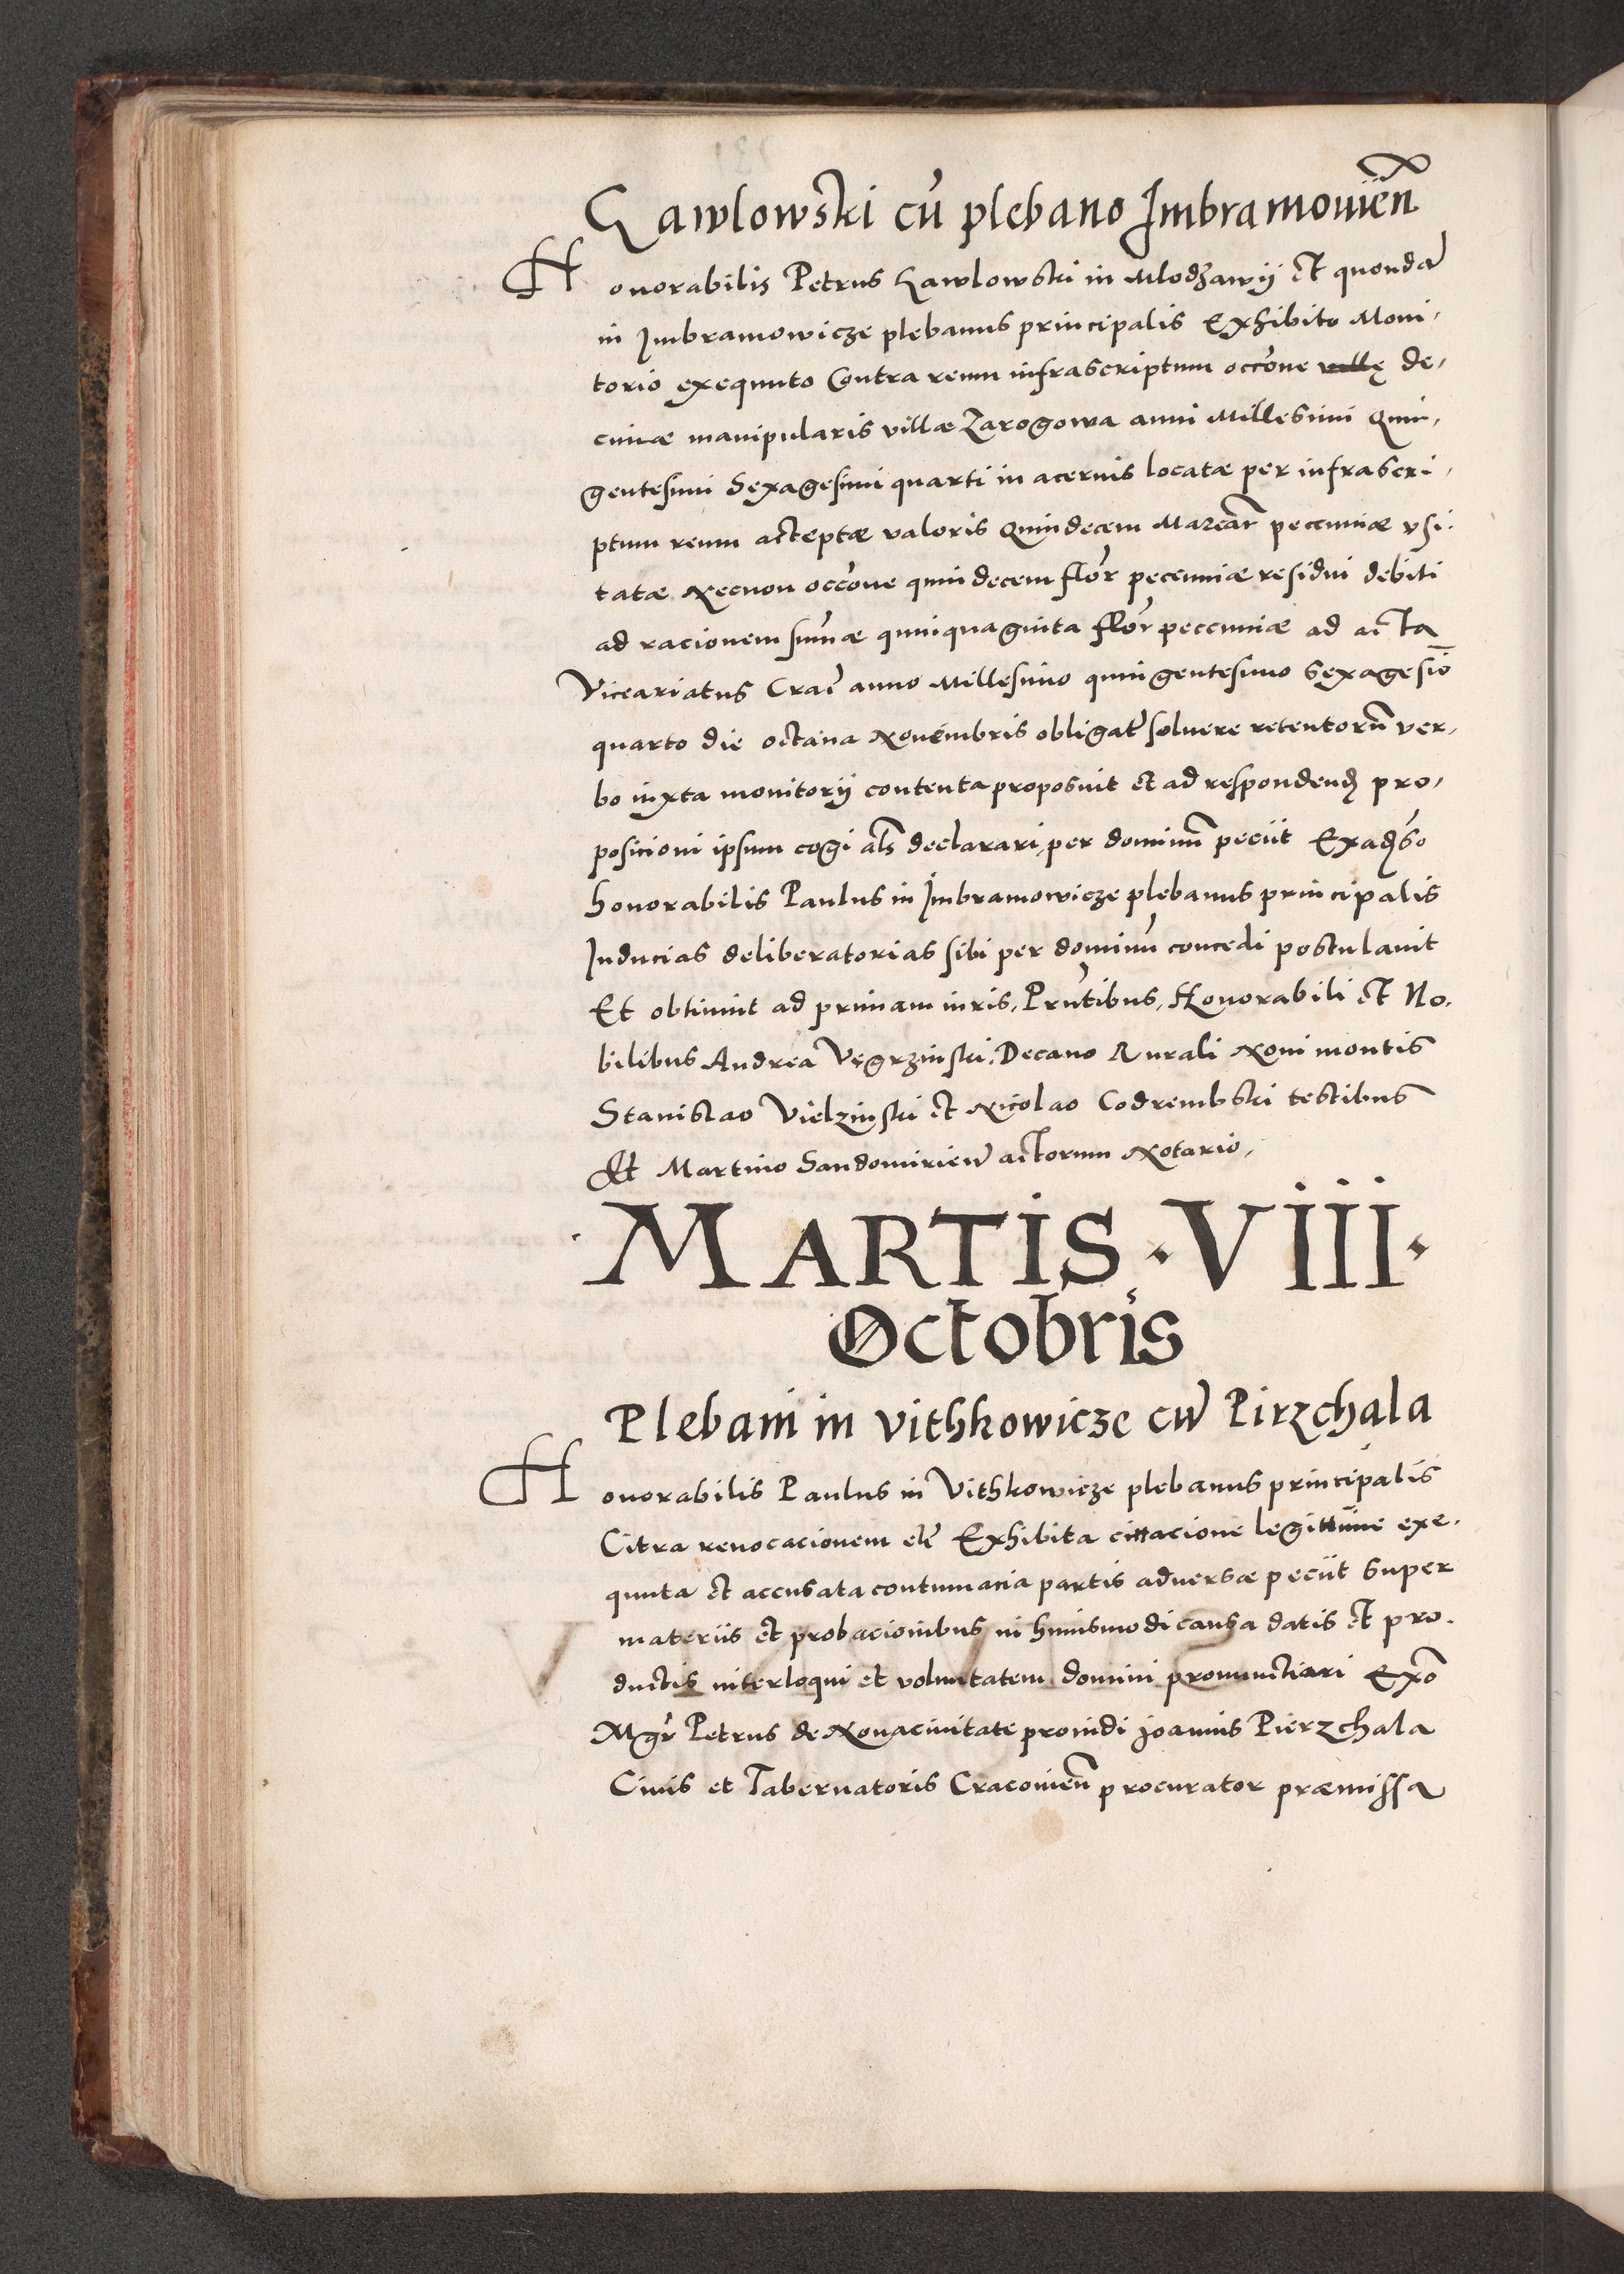 Gawlowski cũ plebano Imbramouień
Honorabilis Petrus Gawlowski in Mlodzawÿ et quondã
in Imbramowicze plebanus principalis Exhibito Moni-
torio exequuto Contra reum infrascriptum occõne villę de-
cimæ manipularis villæ Zarogowa anni Millesimi Quin-
gentesimi Sexagesimi quarti in aceruis locatæ per infrascri-
ptum reum acceptæ valoris Quindecem Marcar̃ pecuniæ vsi-
tatæ Necnon occõne quindecem flor̃ pecuniæ residui debiti
ad racionem sum̃æ quinquaginta flor̃ peccuniæ ad acta
Viceariatus Crac̃ anno Millesimo quingentesimo Sexagesiõ
quarto die octaua Nouembris obligat̃ soluere retentorũ ver-
bo iuxta monitorÿ contenta proposuit et ad respondend̃ pro-
posicioni ipsum cogi al̃s declarari, per dominũ peciit Exad̃so
honorabilis Paulus in Imbramowicze plebanus principalis
Inducias deliberatorias sibi per dominũ concedi postulauit
Et obtinuit ad primam iuris, Prñtibus, Honorabili et No-
bilibus Andrea Vęgrzinski, Decano Rurali Noui montis
Stanislao Vielzinski et Nicolao Codrembski testibus
Et Martino Sandomirień actorum Notario,
·MARTIS·VIII·
Octobris
Plebani in Vithkowicze cũ Pirzchala
Honorabilis Paulus in Vithkowicze plebanus principalis
Citra reuocacionem etc̃ Exhibita cittacione legittime exe-
quuta et accusata contumacia partis aduersæ peciit super
materiis et probacionibus in huiusmodi causa datis et pro-
ductis interloqui et voluntatem domini pronunctiari Exõ
Mgr̃ Petrus de Nouaciuitate prouidi Joannis Pierzchala
Ciuis et Tabernatoris Cracouień procurator præmissa